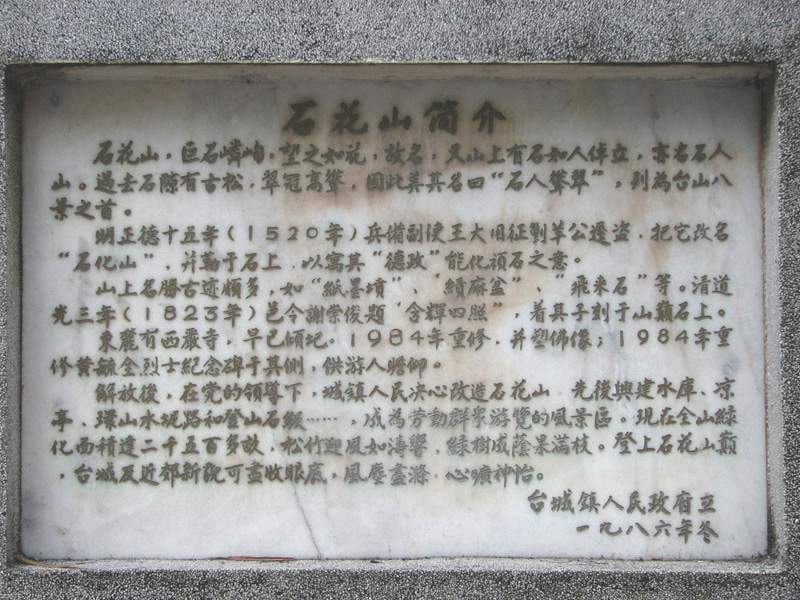 石花山简介
石花山，巨石嶙峋，望之如花，故名，又山上有石如人倬立，亦名石人
山。過去石隙有古松，翠冠高聳，因此美其名曰“石人聳翠”，列為台山八
景之首。
明正德十五年（1520年）兵備副使王大旧征剿羊公遷盗，把它改名
“石化山”，并勒于石上，以寓其“德政”能化頑石之意。
山上名勝古迹頗多，如“紙墨墳”、“續麻盆”、“飛来石”等。清道
光三年（1823年）邑令謝崇俊題“含輝四照”，着其子刻于山巔石上。
東麓有西嚴寺，早已傾圮。1984年重修，并塑佛像；1984年重
修黄毓全烈士紀念碑于其側，供游人瞻仰。
解放後，在党的領導下，城鎮人民决心改造石花山，先後興建水庫、凉
亭、環山水坭路和登山石級……，成為劳動群衆游覽的風景區。現在全山緑
化面積達二千五百多畝，松竹迎風如濤響，緑樹成蔭果滿枝。登上石花山巔
，台城及近郊新貌可盡收眼底，風塵盡滌，心曠神怡。
台城鎮人民政府立
一九八六年冬